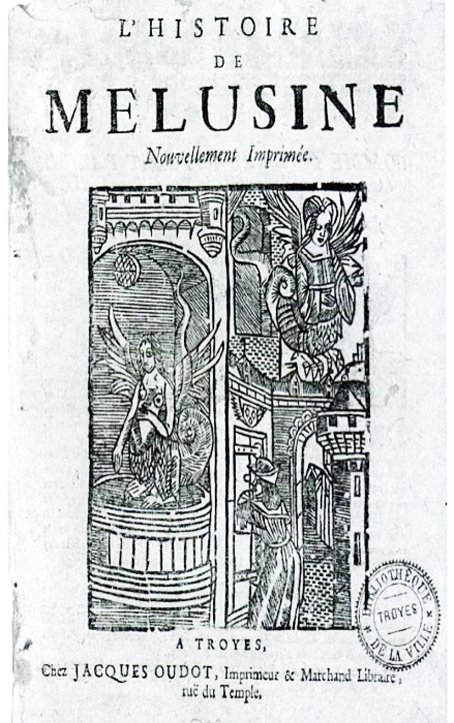 L'HISTOIRE
DE
MELUSINE
Nouvellement Imprimée.
A TROYES,
Chez JACQUES OUDOT, Imprimeur & Marchand Libraire,
ruë du Temple.
BIBLIOTHÈQUE
TROYES
DE LA VILLE